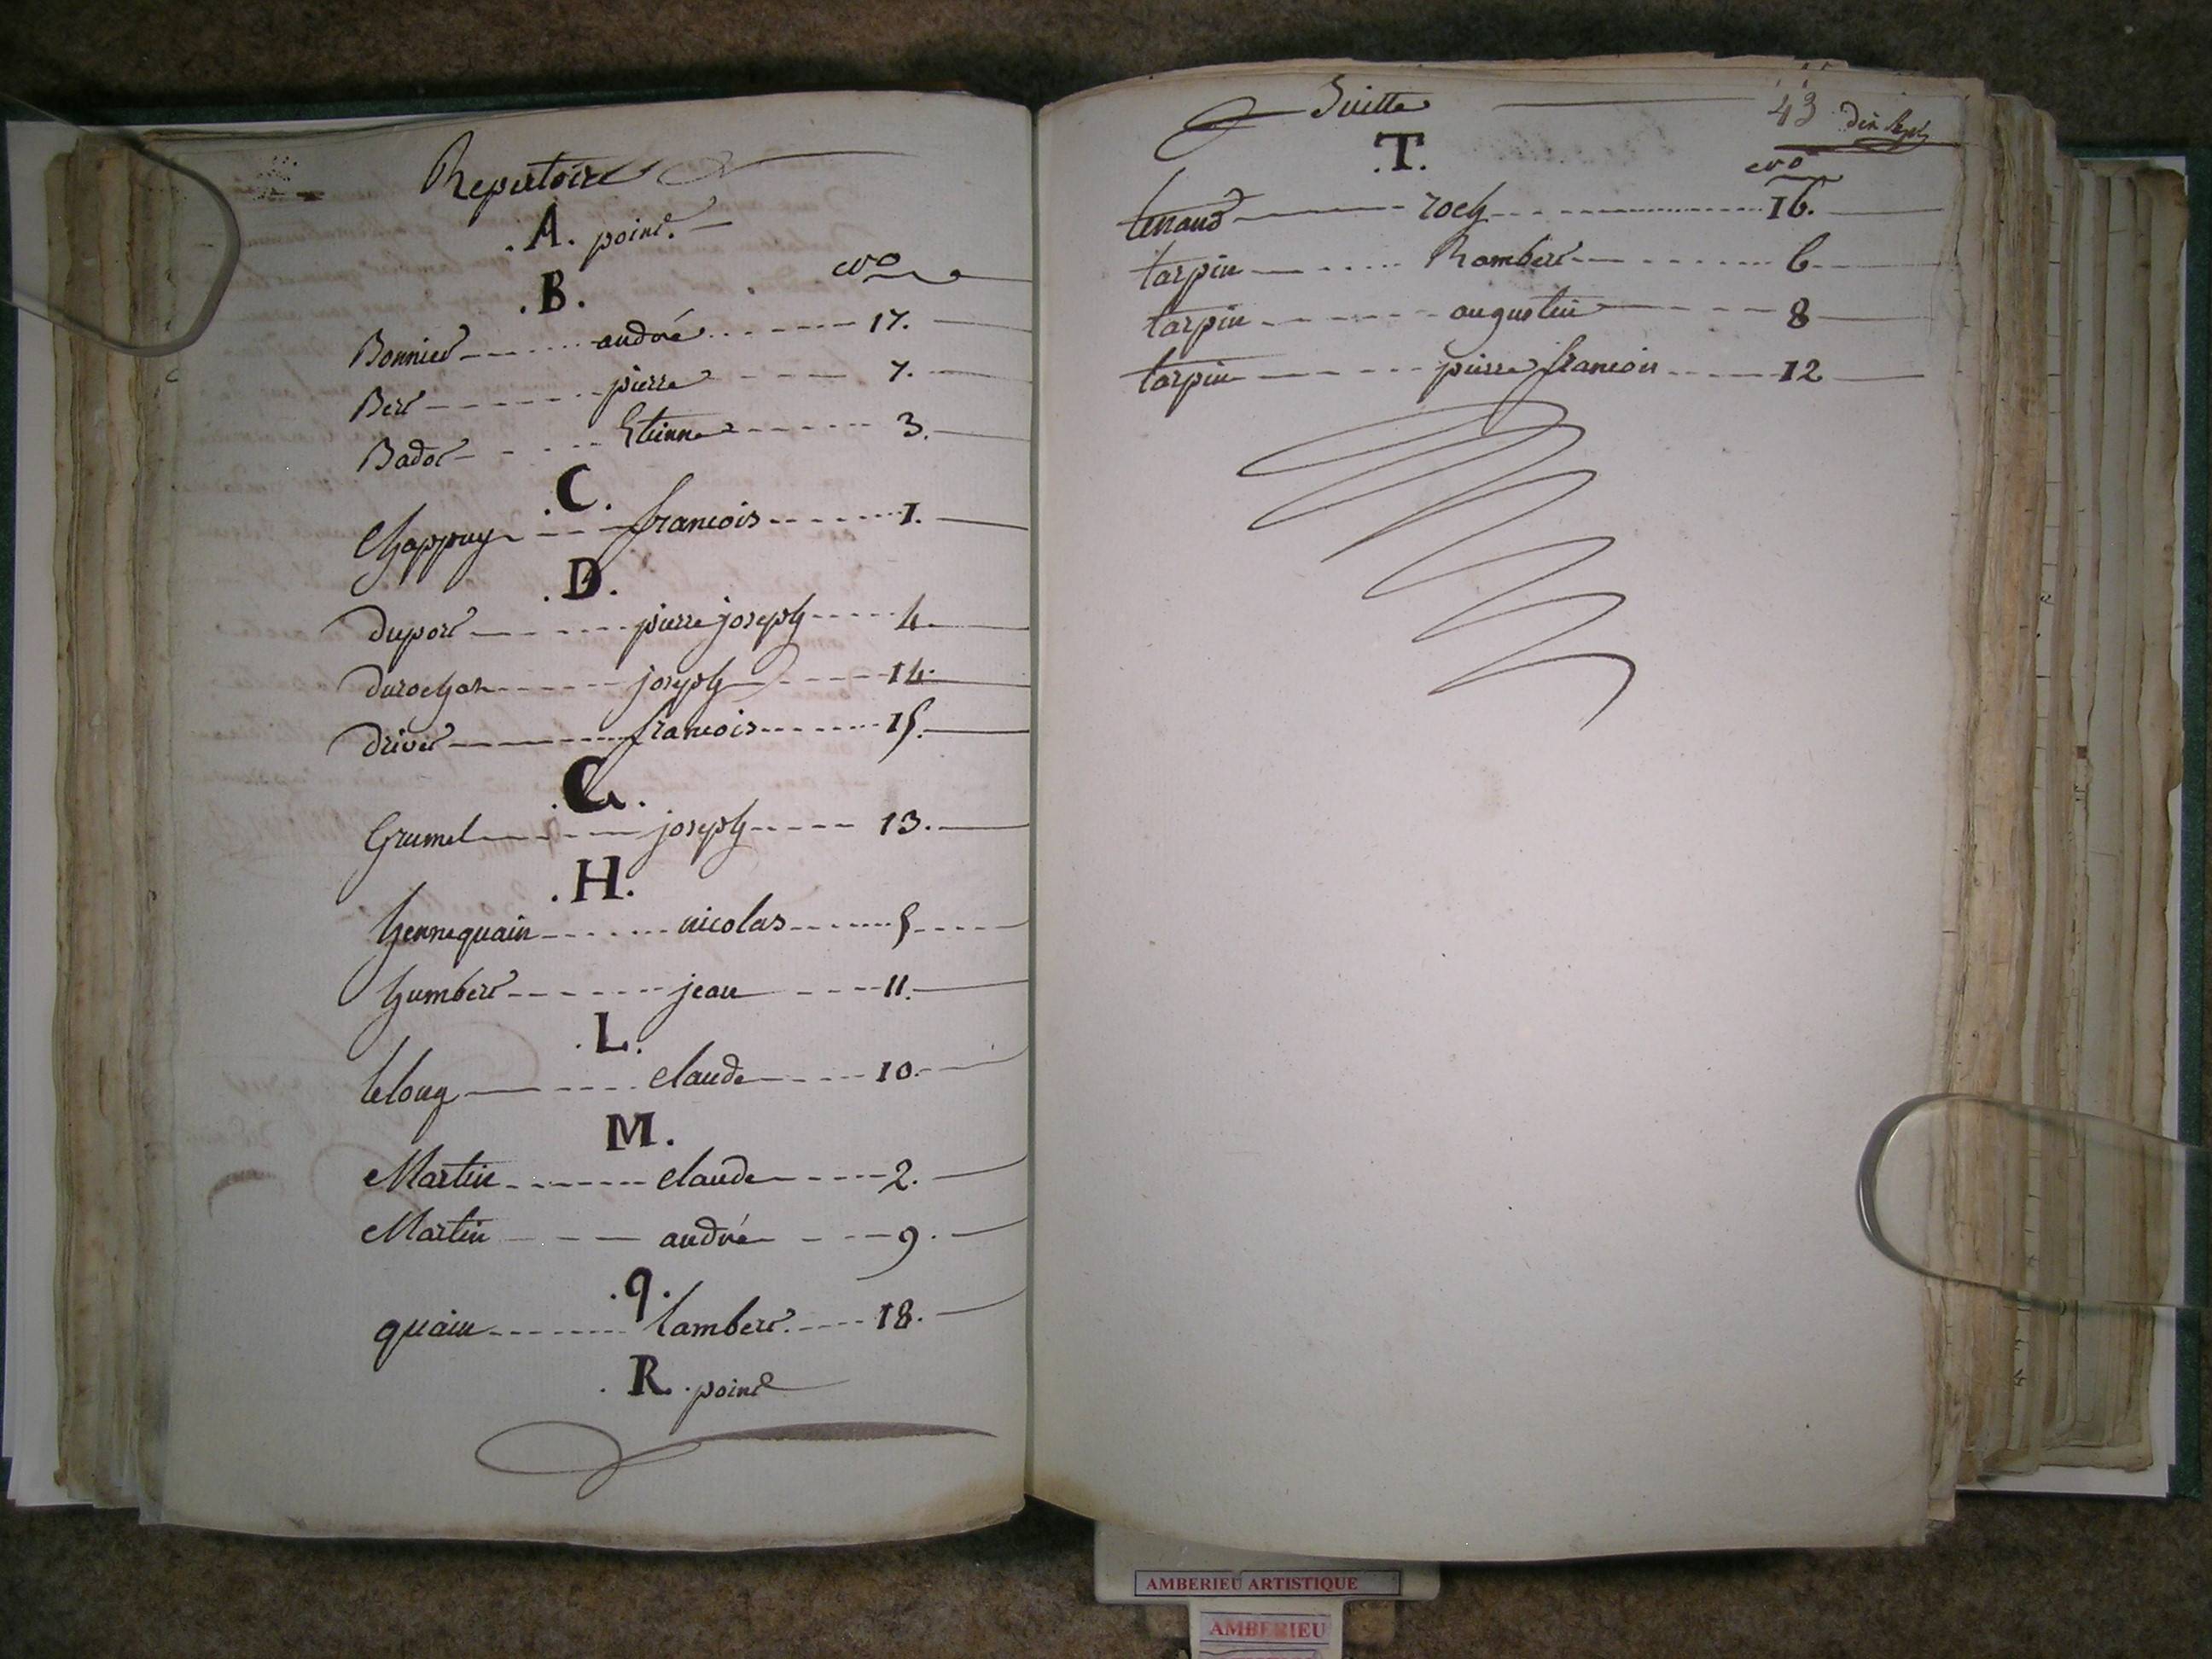 Repertoire
.A. point.
.B. no
Bonnier andré 17.
Bert pierre 7.
Badot Etienne 3.
.C.
Chappuy francois 1.
.D.
duport pierre joseph 4.
durochat joseph 14.
drivet francois 15.
.G.
Grumel joseph 13.
.H.
hennequain nicolas 5
humbert jean 11.
.L.
lelong claude 10.
M.
Martin claude 2.
Martin andré 9.
.q.
quain lambert 18.
.R. point
Suitte 43 dix Sept
.T. no
tenand roch 16.
tarpin Rambert 6
tarpin augustin 8
tarpin pierre francois 12
AMBERIEU ARTISTIQUE
AMBERIEU